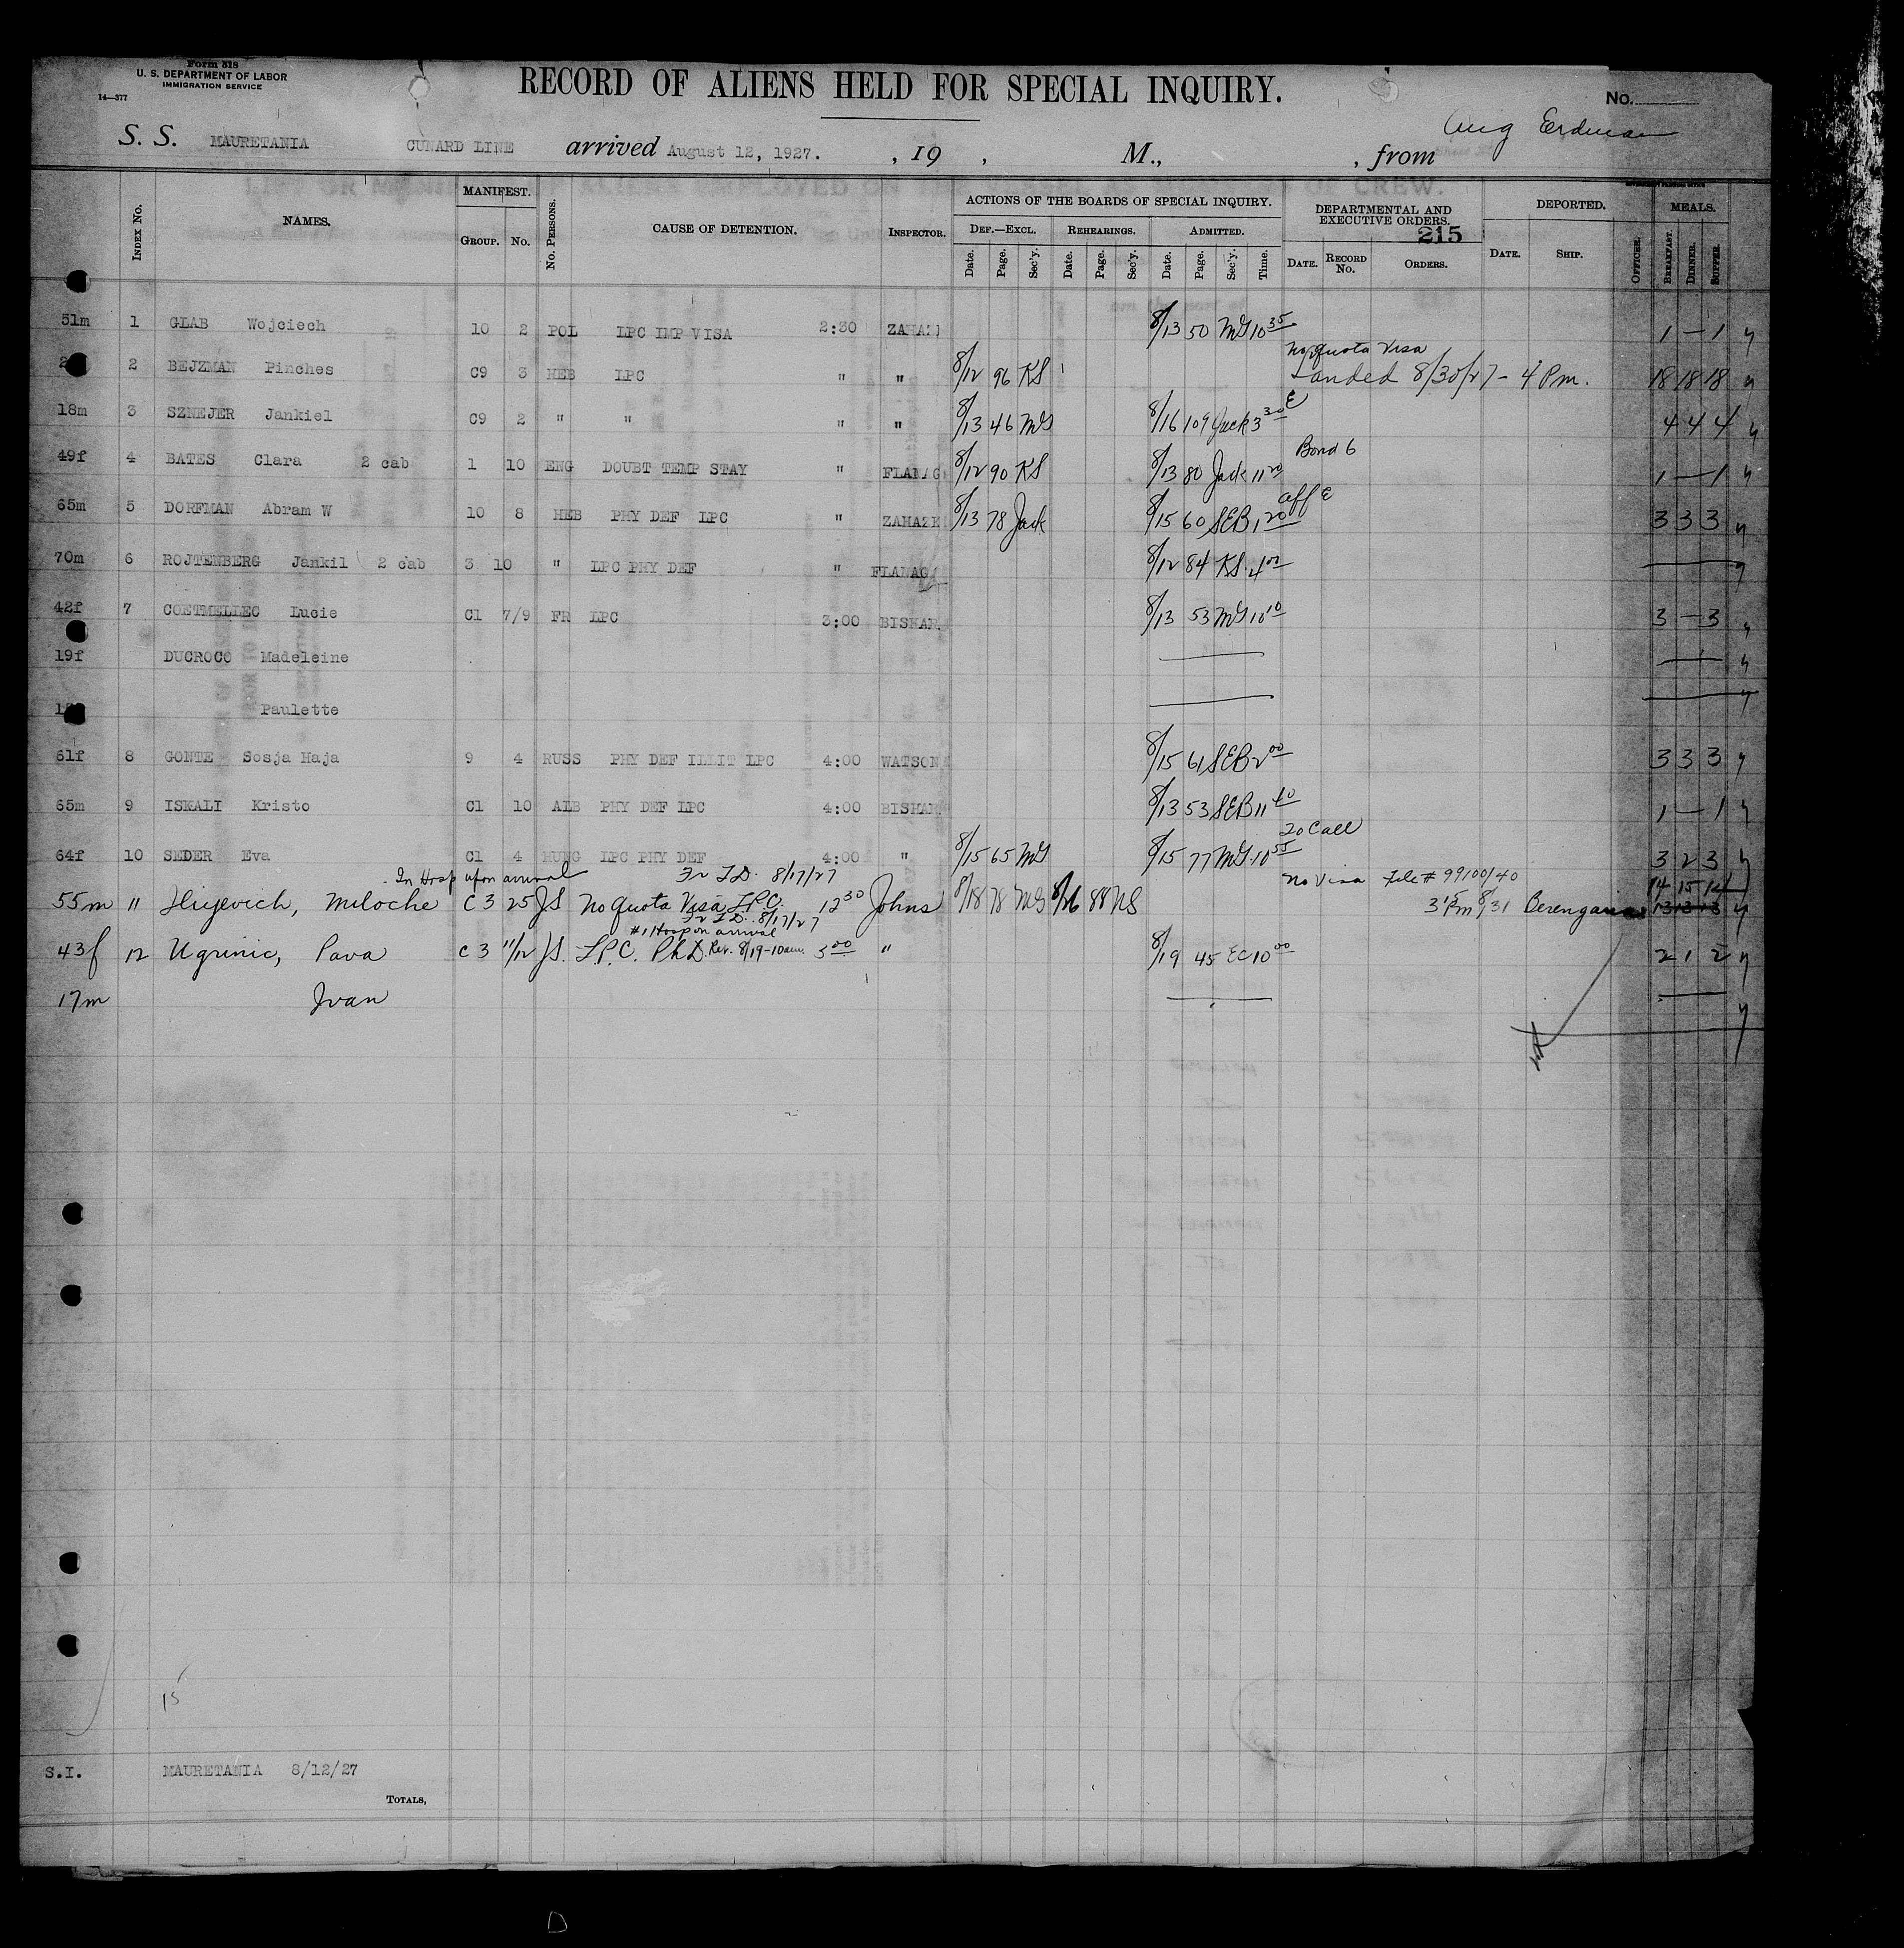 Form 518
U. S. DEPARTMENT OF LABOR
IMMIGRATION SERVICE
14—377
RECORD OF ALIENS HELD FOR SPECIAL INQUIRY.
No.
Aug Erdman
S. S. MAURETANIA CUNARD LINE arrived August 12, 1927. , 19 , M., , from
INDEX No. NAMES. MANIFEST. GROUP. No. No. PERSONS. CAUSE OF DETENTION. INSPECTOR. ACTIONS OF THE BOARDS OF SPECIAL INQUIRY. DEF.—EXCL. Date. Page. Sec'y. REHEARINGS. Date. Page. Sec'y. ADMITTED. Date. Page. Sec'y. Time. DEPARTMENTAL AND EXECUTIVE ORDERS. 215 DATE. RECORD No. ORDERS. DEPORTED. DATE. SHIP. OFFICER. MEALS. BREAKFAST. DINNER. SUPPER.
51m 1 GLAB Wojciech 10 2 POL LPC IMP VISA 2:30 8/13 50 MG 10 35 1 — 1
No Quota Visa
2 BEJZMAN Pinches C9 3 HEB LPC " " 8/12 96 KS Landed 8/30/27 - 4 Pm. 18 18 18
18m 3 SZNEJER Jankiel C9 2 " " " " 8/13 46 MG 8/16 109 Jack 3 30 E 4 4 4
Bond 6
49f 4 BATES Clara 2 cab 1 10 ENG DOUBT TEMP STAY " FLANAG 8/12 90 KS 8/13 80 Jack 11 20 1 — 1
65m 5 DORFMAN Abram W 10 8 HEB PHY DEF LPC " 8/13 78 Jack 8/15 60 SEB 1 20 aff E 3 3 3
70m 6 ROJTENBERG Jankil 2 cab 3 10 " LPC PHY DEF " FLANAG 8/12 84 KS 4 00
42f 7 COETMELLEC Lucie C1 7/9 FR LPC 3:00 BISHAR 8/13 53 MG 10 10 3 — 3
19f DUCROCO Madeleine
Paulette
61f 8 GONTE Sosja Haja 9 4 RUSS PHY DEF ILLIT LPC 4:00 WATSON 8/15 61 SEB 2 00 3 3 3
65m 9 ISKALI Kristo C1 10 ALB PHY DEF LPC 4:00 BISHAR 8/13 53 SEB 11 40 1 — 1
To Call
64f 10 SEDER Eva C1 4 HUNG LPC PHY DEF 4:00 " 8/15 65 MG 8/15 77 MG 10 55 3 2 3
In Hosp upon arrival Fr T.D. 8/17/27 No Visa File # 99100/40 14 15 14
55m 11 Ilijevich, Miloche C 3 25 JS No Quota Visa L.P.C. 12 30 Johns 8/18 78 MG 8/26 88 NS 3 15 Pm 8/31 Berengaria 13 13 13
Fr T.D. 8/17/27
#1 Hosp on arrival
43f 12 Ugrinic, Pava C 3 11/12 JS. L.P.C. Ph.D. Rev. 8/19-10am. 3 00 " 8/19 45 EC 10 00 2 1 2
17m Ivan
15
S.I. MAURETANIA 8/12/27
TOTALS,